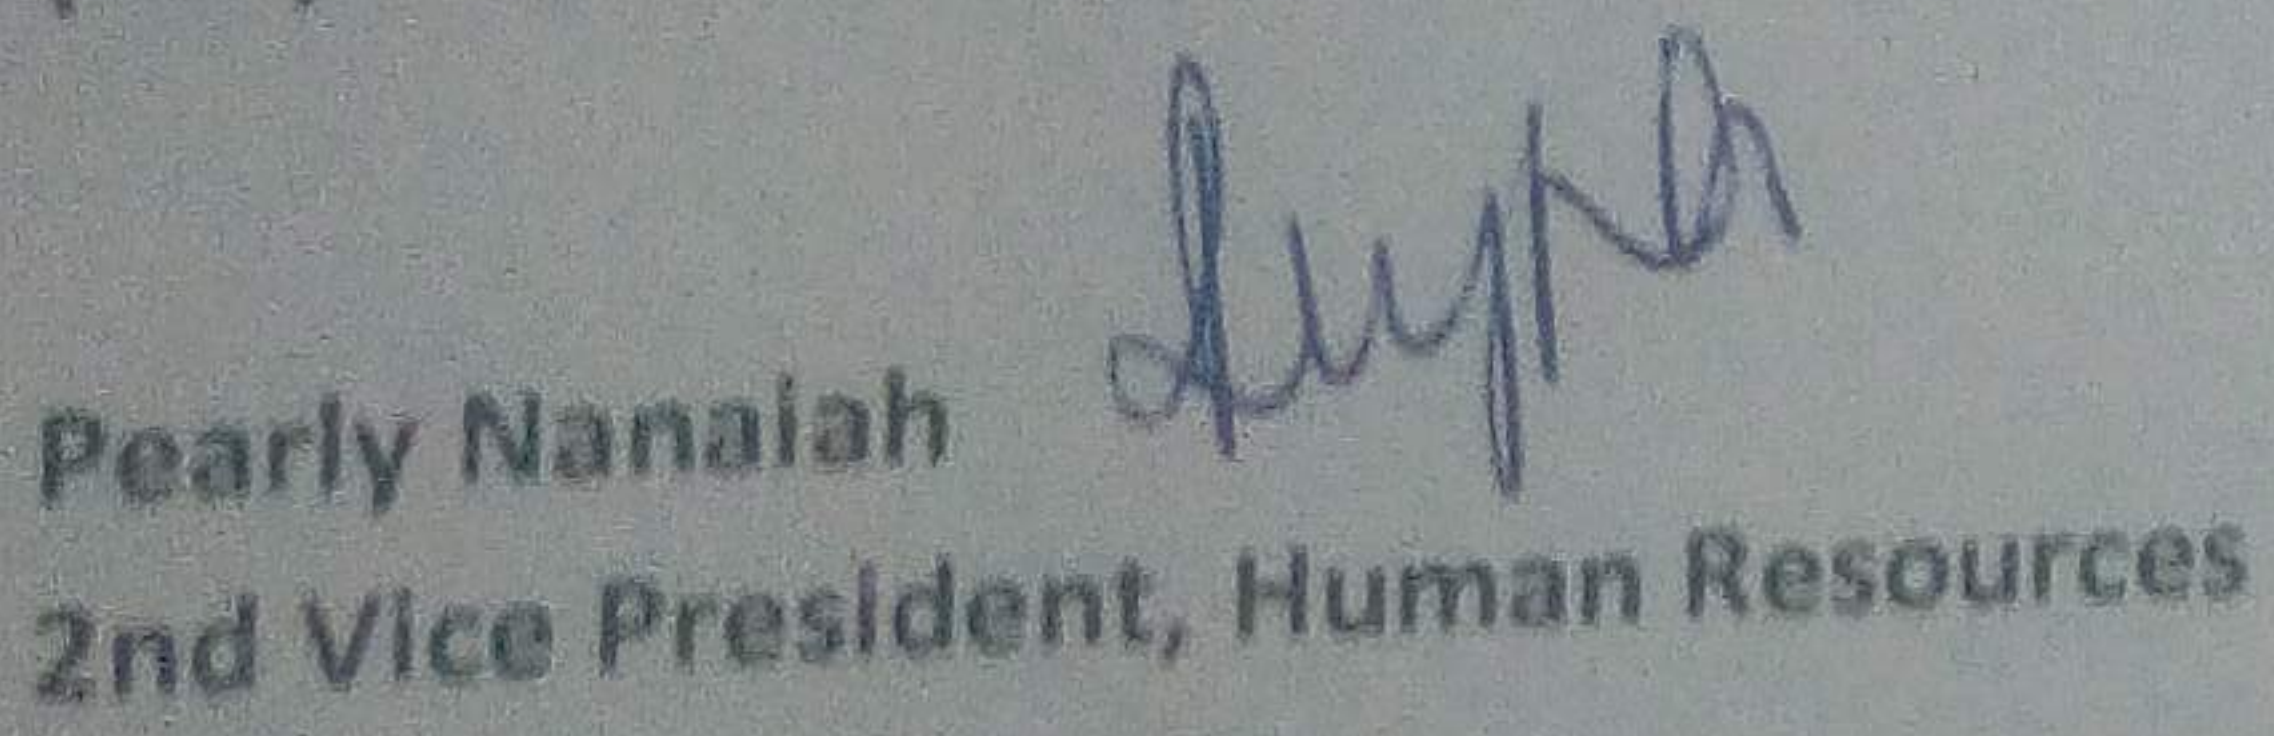 Pearly Nanaiah
2nd Vice President, Human Resources